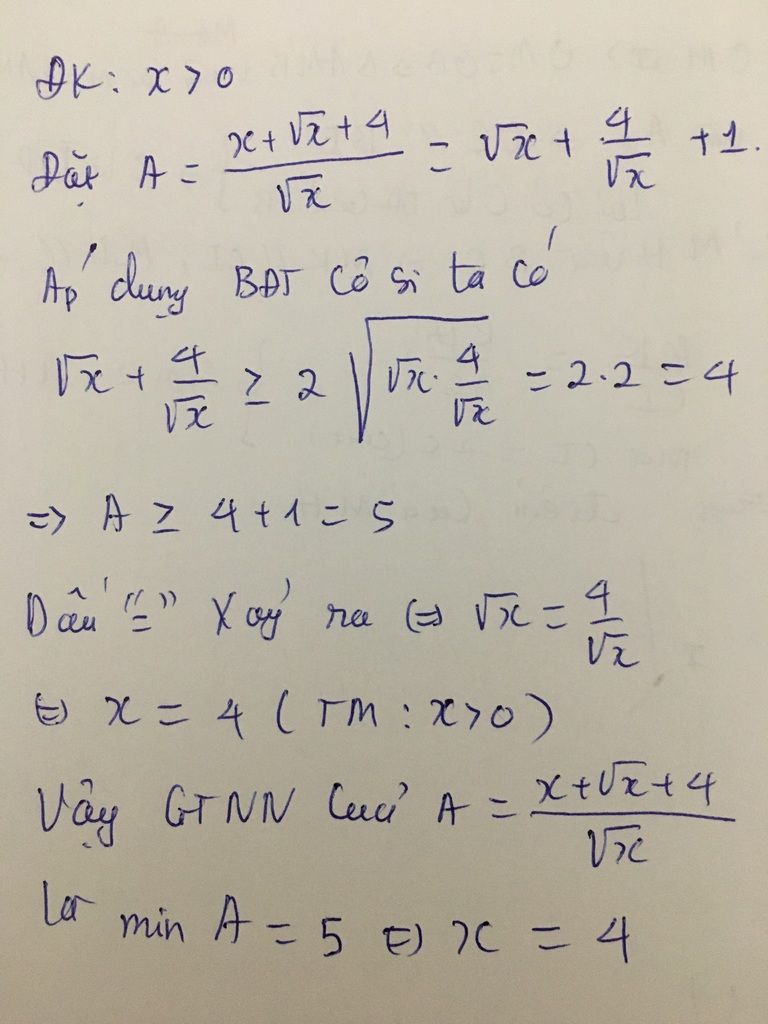 ĐK: x > 0
Đặt A = \frac{x+\sqrt{x}+4}{\sqrt{x}} = \sqrt{x} + \frac{4}{\sqrt{x}} + 1.
Áp dụng BĐT Cô si ta có
\sqrt{x} + \frac{4}{\sqrt{x}} ≥ 2 \sqrt{\sqrt{x} \cdot \frac{4}{\sqrt{x}}} = 2.2 = 4
=> A ≥ 4+1 = 5
Dấu "=" Xảy ra <=> \sqrt{x} = \frac{4}{\sqrt{x}}
<=> x = 4 (TM : x>0)
Vậy GTNN Của A = \frac{x+\sqrt{x}+4}{\sqrt{x}}
là min A = 5 <=> x = 4